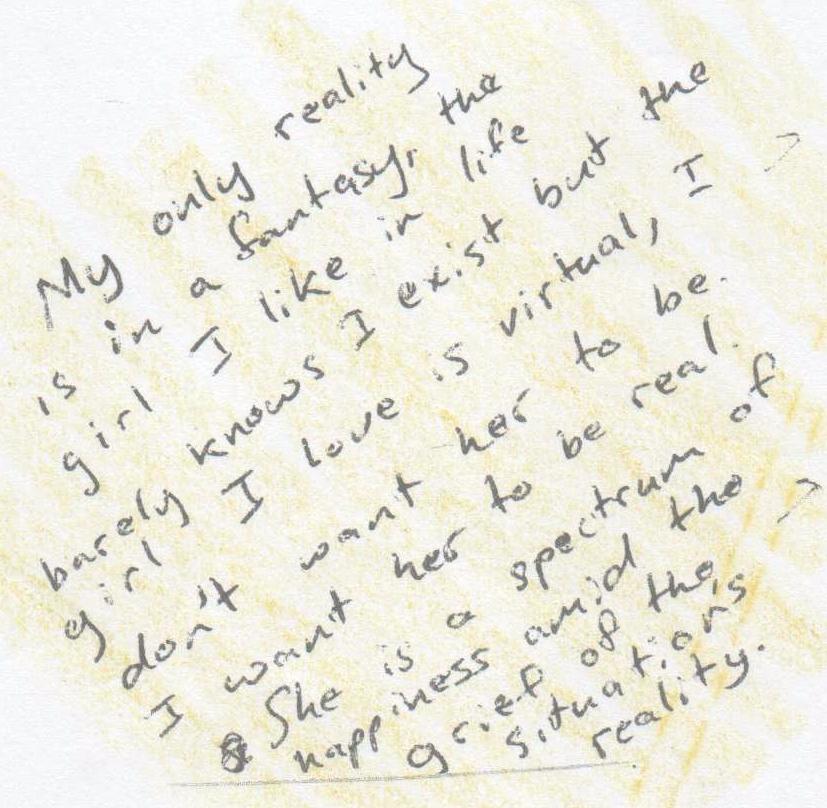 My only reality
is in a fantasy, the
girl I like in life
barely knows I exist but the
girl I love is virtual, I
don't want her to be.
I want her to be real.
She is a spectrum of
happiness amid the
grief of this
situations
reality.